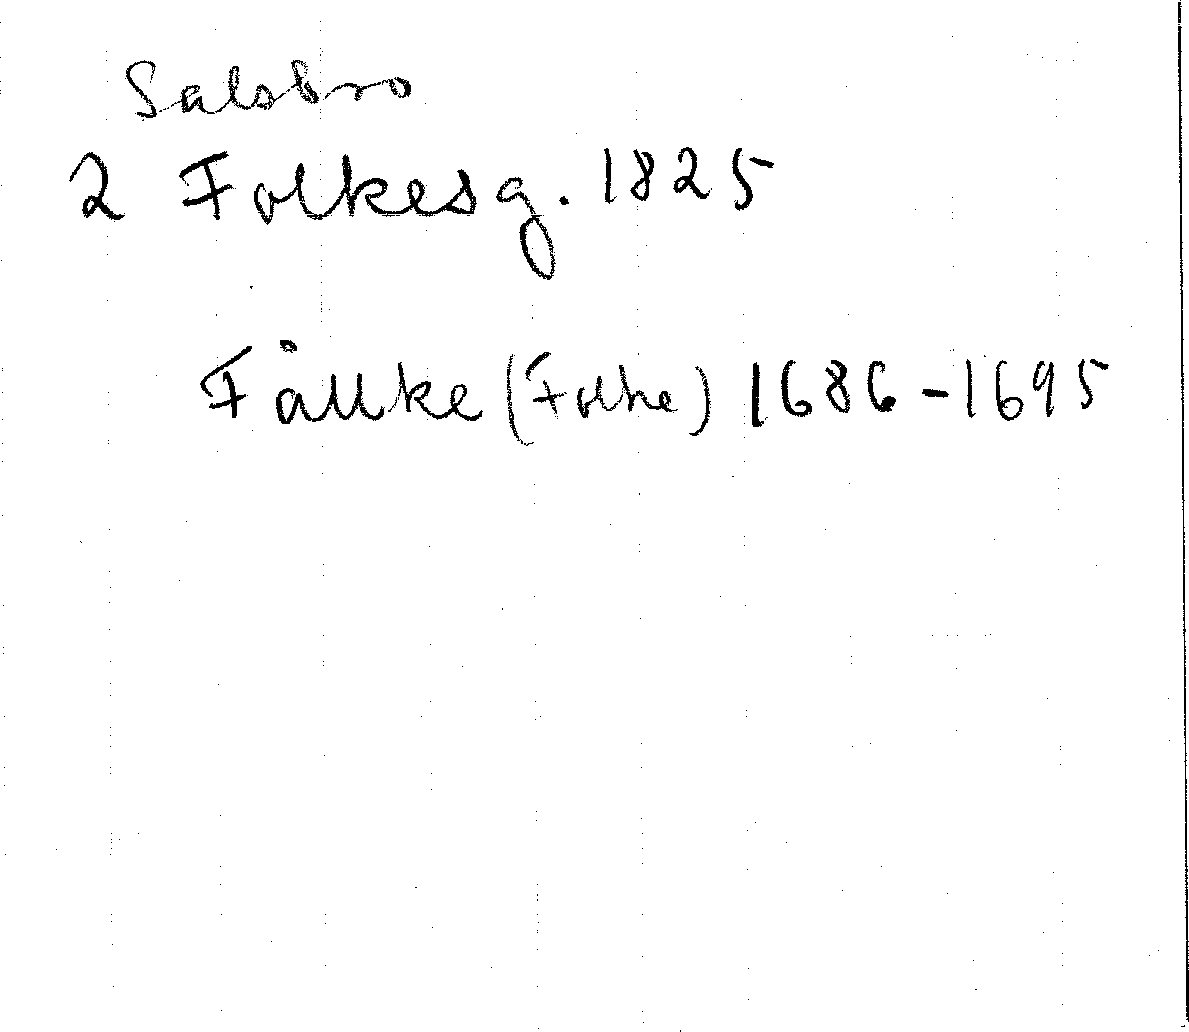 Salsbro
2 Folkesg. 1825
Fållke (Folke) 1686-1695